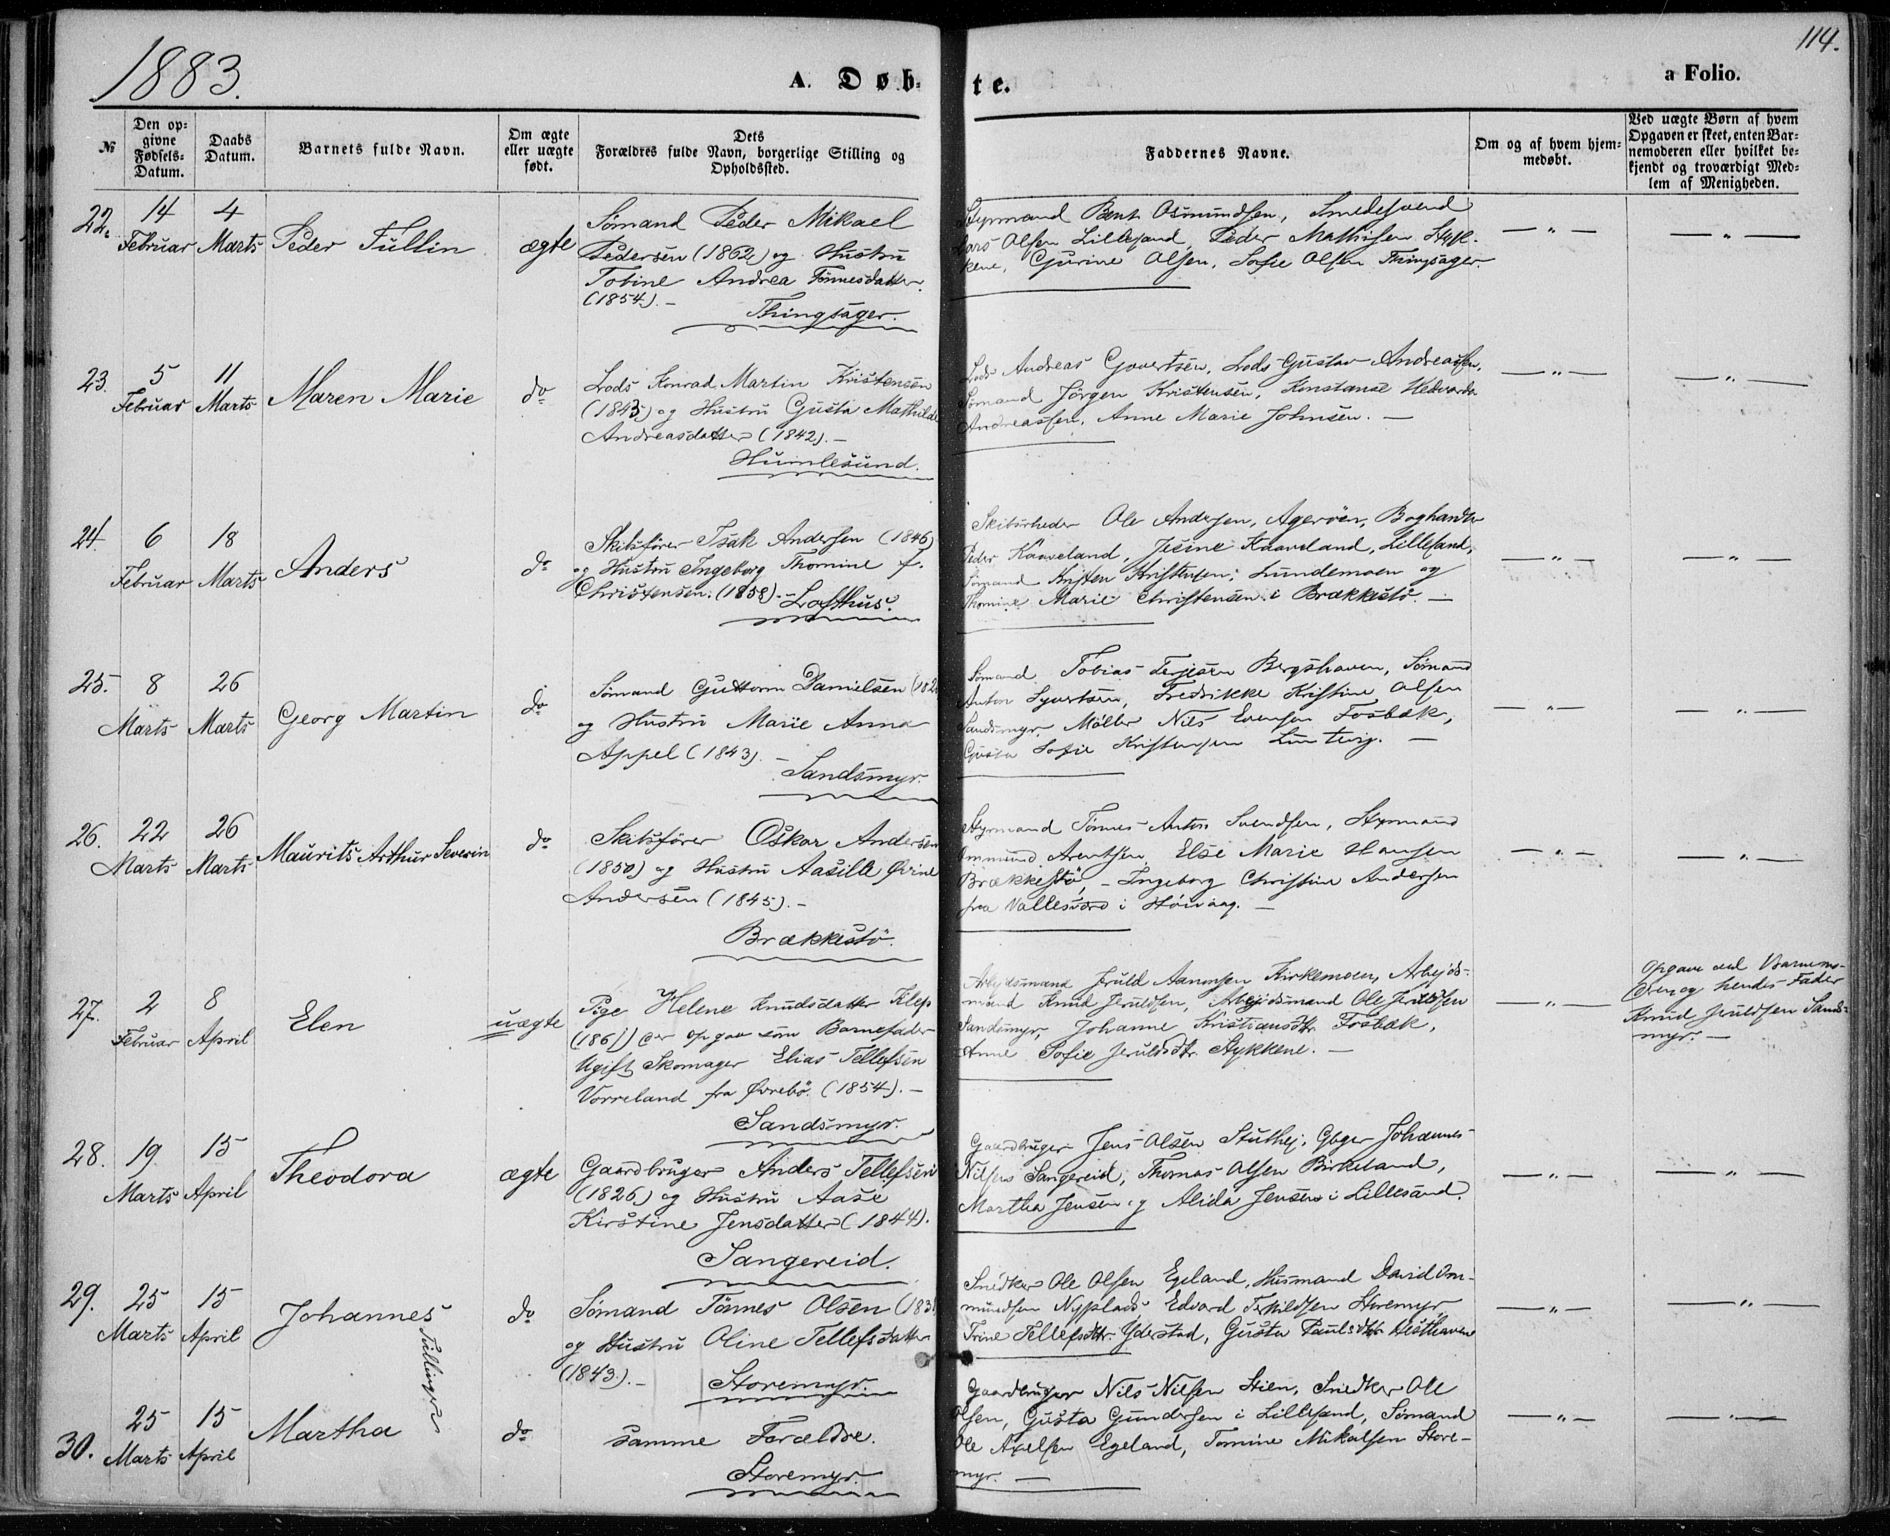 1883.
A. Døbte.
114.
a Folio.
№
Den opgivne Fødsels-Datum.
Daabs Datum.
Barnets fulde Navn.
Om ægte eller uægte født.
Dets Forældres fulde Navn, borgerlige Stilling og Opholdssted.
Faddernes Navne.
Om og af hvem hjemmedøbt.
Ved uægte Børn af hvem Opgaven er skeet, enten Barnemoderen eller hvilket bekjendt og troværdigt Medlem af Menigheden.
22.
14 Februar
4 Marts
Peder Tullin
ægte
Sømand Peder Mikael
Pedersen (1862) og Hustru
Tobine Andrea Tønnesdatter
(1854). —
Thingsager.
Styrmand Bent Osmundsen, Smedesvend
Lars Olsen Lillesand, Peder Mathisen Styk-
kene, Gjurine Olsen, Sofie Olsen Thingsager.
— " —
— " —
23.
5 Februar
11 Marts
Maren Marie
do
Lods Konrad Martin Kristensen
(1843) og Hustru Gusta Mathilde
Andreasdatter (1842). —
Humlesund.
Lods Andreas Govertsen, Lods Gustav Andreassen,
Sømand Jörgen Kristensen, Konstanse Hedvarda
Andreassen, Anne Marie Johnsen. —
— " —
— " —
24.
6 Februar
18 Marts
Anders
do
Skibsfører Isak Andersen (1846)
og Hustru Ingeborg Thomine f.
Christensen. (1858). —
Lofthus.
Skibsrheder Ole Andersen, Agerøen, Boghandler
Peder Kaaveland, Jesine Kaaveland, Lillesand,
Sømand Kristen Kristensen, Lundemoen og
Thomine Marie Christensen i Brækkestö. —
— " —
— " —
25.
8 Marts
26 Marts
Georg Martin
do
Sømand Guttorm Danielsen (182
og Hustru Marie Anna
Appel (1843). —
Sandsmyr.
Sømand Tobias Terjesen Bergshaven, Sømand
Anton Syvertsen, Fredrikke Kristine Olsen
Sandsmyr, Møller Nils Evensen Fosbæk,
Gusta Sofie Kristensen Luntevig. —
— " —
— " —
26.
22 Marts
26 Marts
Maurits Arthur Severin
do
Skibsfører Oskar Andersen
(1850) og Hustru Aasille Øvine
Andersen (1845). —
Brækkestö.
Styrmand Tönnes Anton Svendsen, Styrmand
Ommund Arentsen, Else Marie Hansen
Brækkestö, — Ingeborg Christine Andersen
fra Vallesværd i Høivaag. —
— " —
— " —
27.
2 Februar
8 April
Elen
uægte
Pige Helene Knudsdatter Klep
(1861) er opgav som Barnefader
Ugift Skomager Elias Tellefsen
Vorreland fra Øvrebö. (1854). —
Sandsmyr.
Arbejdsmand Jeruld Aanonsen Kirkemoen, Arbejds-
mand Knud Jeruldsen, Arbejdsmand Ole Jeruldsen
Sandsmyr, Johanne Kristiansdtr. Fosbæk,
Anne Sofie Jeruldsdtr. Stykkene. —
— " —
Opgave ved Barnemo-
deren og hendes Fader
Knud Jeruldsen Sands-
myr. —
28.
19 Marts
15 April
Theodora
ægte
Gaardbruger Anders Tellefsen
(1826) og Hustru Aase
Kirstine Jensdatter (1844).
Sangereid.
Gaardbruger Jens Olsen Stuthej, Gbger Johannes
Nilsen Sangereid, Thomas Olsen Birkeland,
Martha Jensen og Alida Jensen i Lillesand.
— " —
— " —
29.
25 Marts
15 April
Johannes
Tvillinger
do
Sømand Tönnes Olsen (183
og Hustru Oline Tellefsdatter
(1843). —
Storemyr.
Snedker Ole Olsen Egeland, Husmand David Om-
mundsen Nyplads, Edvard Terkildsen Storemyr,
Trine Tellefsdtr. Ydestad, Gusta Paulsdtr. Hesthaven
— " —
— " —
30.
25 Marts
15 April
Martha
do
samme Forældre.
Storemyr.
Gaardbruger Nils Nilsen Stien, Snedker Ole
Olsen, Gusta Gundersen i Lillesand, Sømand
Ole Axelsen Egeland, Tomine Mikalsen Store-
myr. —
— " —
— " —